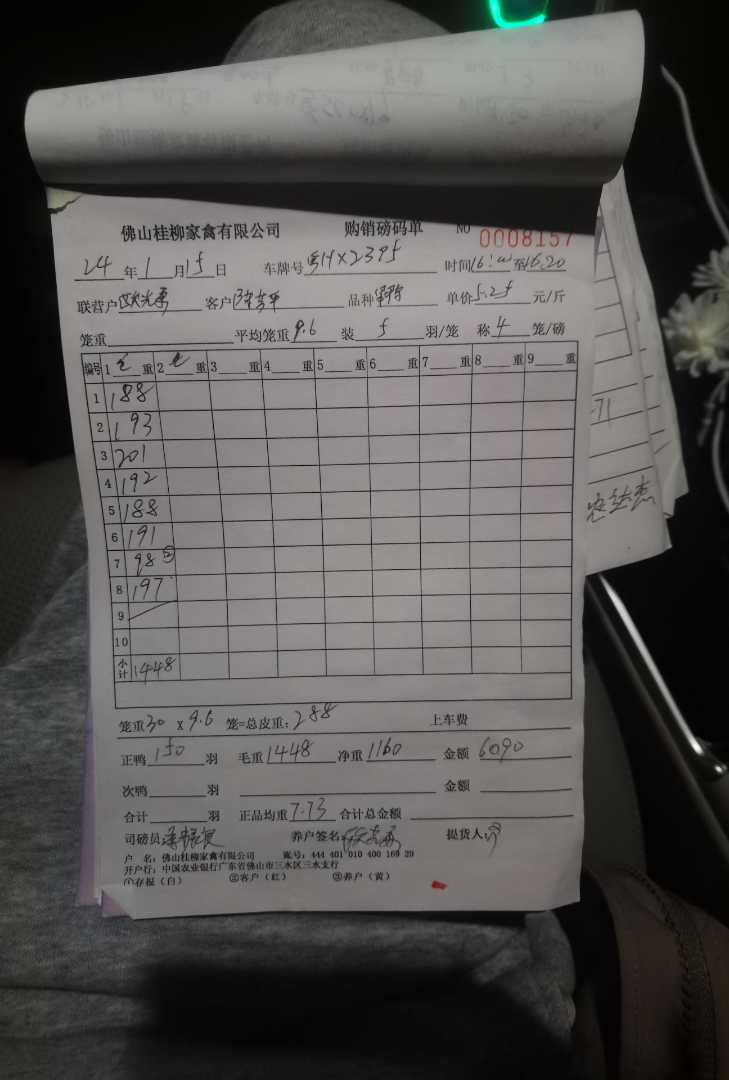 佛山桂柳家禽有限公司 购销磅码单 NO 0008157
24 年 1 月 15 日 车牌号 HX2395 时间 16: 至 16.20
联营户 客户 品种 单价 5.25 元/斤
笼重 平均笼重 9.6 装 5 羽/笼 称 4 笼/磅
编号 1 毛 重 2 毛 重 3 重 4 重 5 重 6 重 7 重 8 重 9 重
1 188
2 193
3 201
4 192
5 188
6 191
7 98 ②
8 197
9
10
小计 1448
笼重 30 x 9.6 笼=总皮重: 288 上车费
正鸭 150 羽 毛重 1448 净重 1160 金额 6090
次鸭 羽 金额
合计 羽 正品均重 7.73 合计总金额
司磅员 养户签名 提货人
户 名: 佛山桂柳家禽有限公司 账号: 444 401 010 400 169 29
开户行: 中国农业银行广东省佛山市三水区三水支行
①存根(白) ②客户(红) ③养户(黄)